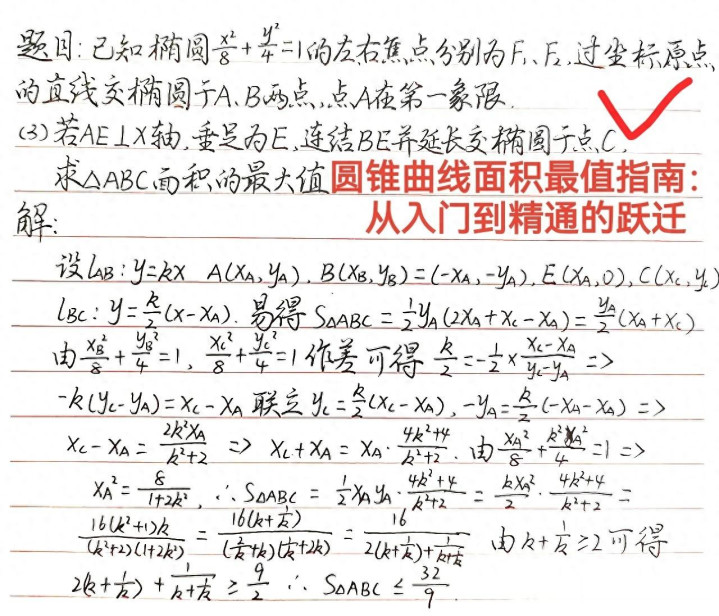 题目:已知椭圆x²/8+y²/4=1的左右焦点分别为F₁、F₂,过坐标原点
的直线交椭圆于A、B两点,点A在第一象限.
(3)若AE⊥X轴,垂足为E,连结BE并延长交椭圆于点C,
求△ABC面积的最大值
圆锥曲线面积最值指南:
从入门到精通的跃迁
解:
设l_AB:y=kx A(x_A,y_A),B(x_B,y_B)=(-x_A,-y_A),E(x_A,0),C(x_C,y_C)
l_BC:y=k/2(x-x_A).易得S△ABC=1/2y_A(2x_A+x_C-x_A)=y_A/2(x_A+x_C)
由x_B²/8+y_B²/4=1,x_C²/8+y_C²/4=1作差可得 k/2=-1/2×(x_C-x_A)/(y_C-y_A)=>
-k(y_C-y_A)=x_C-x_A 联立y_C=k/2(x_C-x_A),-y_A=k/2(-x_A-x_A)=>
x_C-x_A=2k²x_A/(k²+2)=>x_C+x_A=x_A·(4k²+4)/(k²+2).由x_A²/8+k²x_A²/4=1=>
x_A²=8/(1+2k²),∴S△ABC=1/2x_Ay_A·(4k²+4)/(k²+2)=kx_A²/2·(4k²+4)/(k²+2)=
16(k²+1)k/((k²+2)(1+2k²))=16(k+1/k)/((2/k+k)(1/k+2k))=16/(2(k+1/k)+1/(k+1/k)) 由k+1/k≥2可得
2(k+1/k)+1/(k+1/k)≥9/2 ∴S△ABC≤32/9.